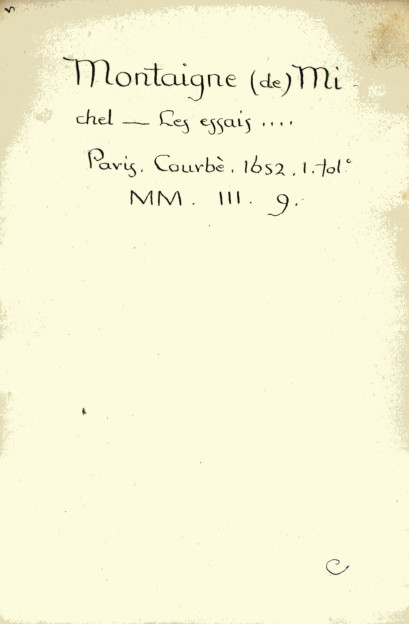 Montaigne (de) Mi-
chel — Les essais ....
Paris. Courbè. 1652. 1. fol.°
MM. III. 9.
C